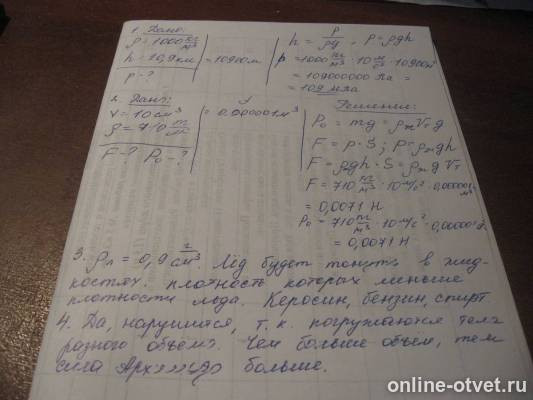 1. Дано:
ρ = 1000 кг/м³
h = 10,9 км = 10900 м
p - ?
h = p/ρg, p = ρgh
p = 1000 кг/м³ · 10 м/с² · 10900 м
= 109000000 Па =
= 109 МПа
2. Дано:
V = 10 см³ = 0,00001 м³
ρ = 710 кг/м³
F - ? P₀ - ?
Решение:
P₀ = mg = ρжVтg
F = p · S; p = ρжgh
F = ρжgh · S = ρжgVт
F = 710 кг/м³ · 10 м/с² · 0,00001 м³
= 0,0071 Н
P₀ = 710 кг/м³ · 10 м/с² · 0,00001
= 0,0071 Н
3. ρл = 0,9 г/см³. Лёд будет тонуть в жид-
костях, плотность которых меньше
плотности льда. Керосин, бензин, спирт
4. Да, нарушится, т.к. погружаются тела
разного объема. Чем больше объем, тем
сила Архимеда больше.
online-otvet.ru